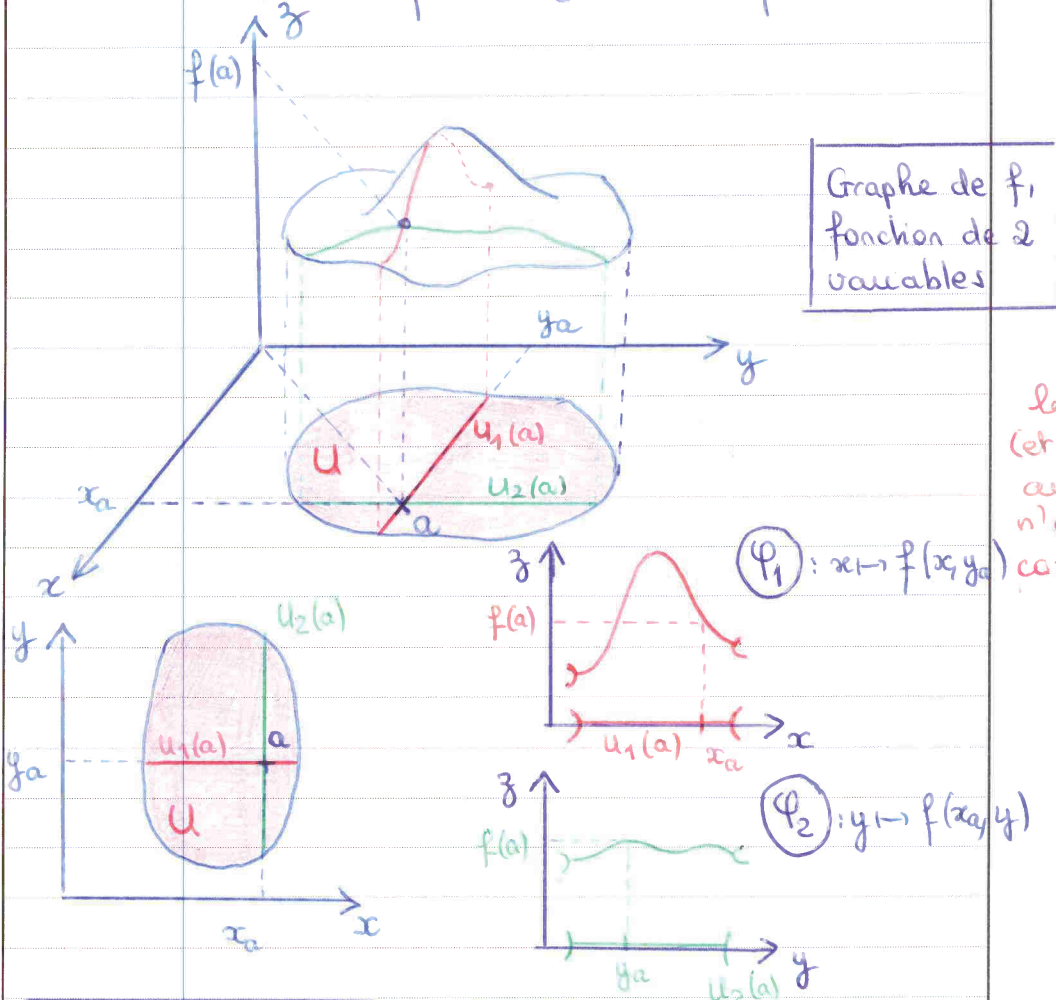 z
f(a)
Graphe de f,
fonction de 2
variables
y_a
y
U
u₁(a)
u₂(a)
x_a
a
x
(et
z
φ₁ : x ↦ f(x, y_a)
f(a)
u₁(a)
x_a
x
y
u₂(a)
u₁(a)
a
y_a
U
x_a
x
z
φ₂ : y ↦ f(x_a, y)
f(a)
y_a
u₂(a)
y